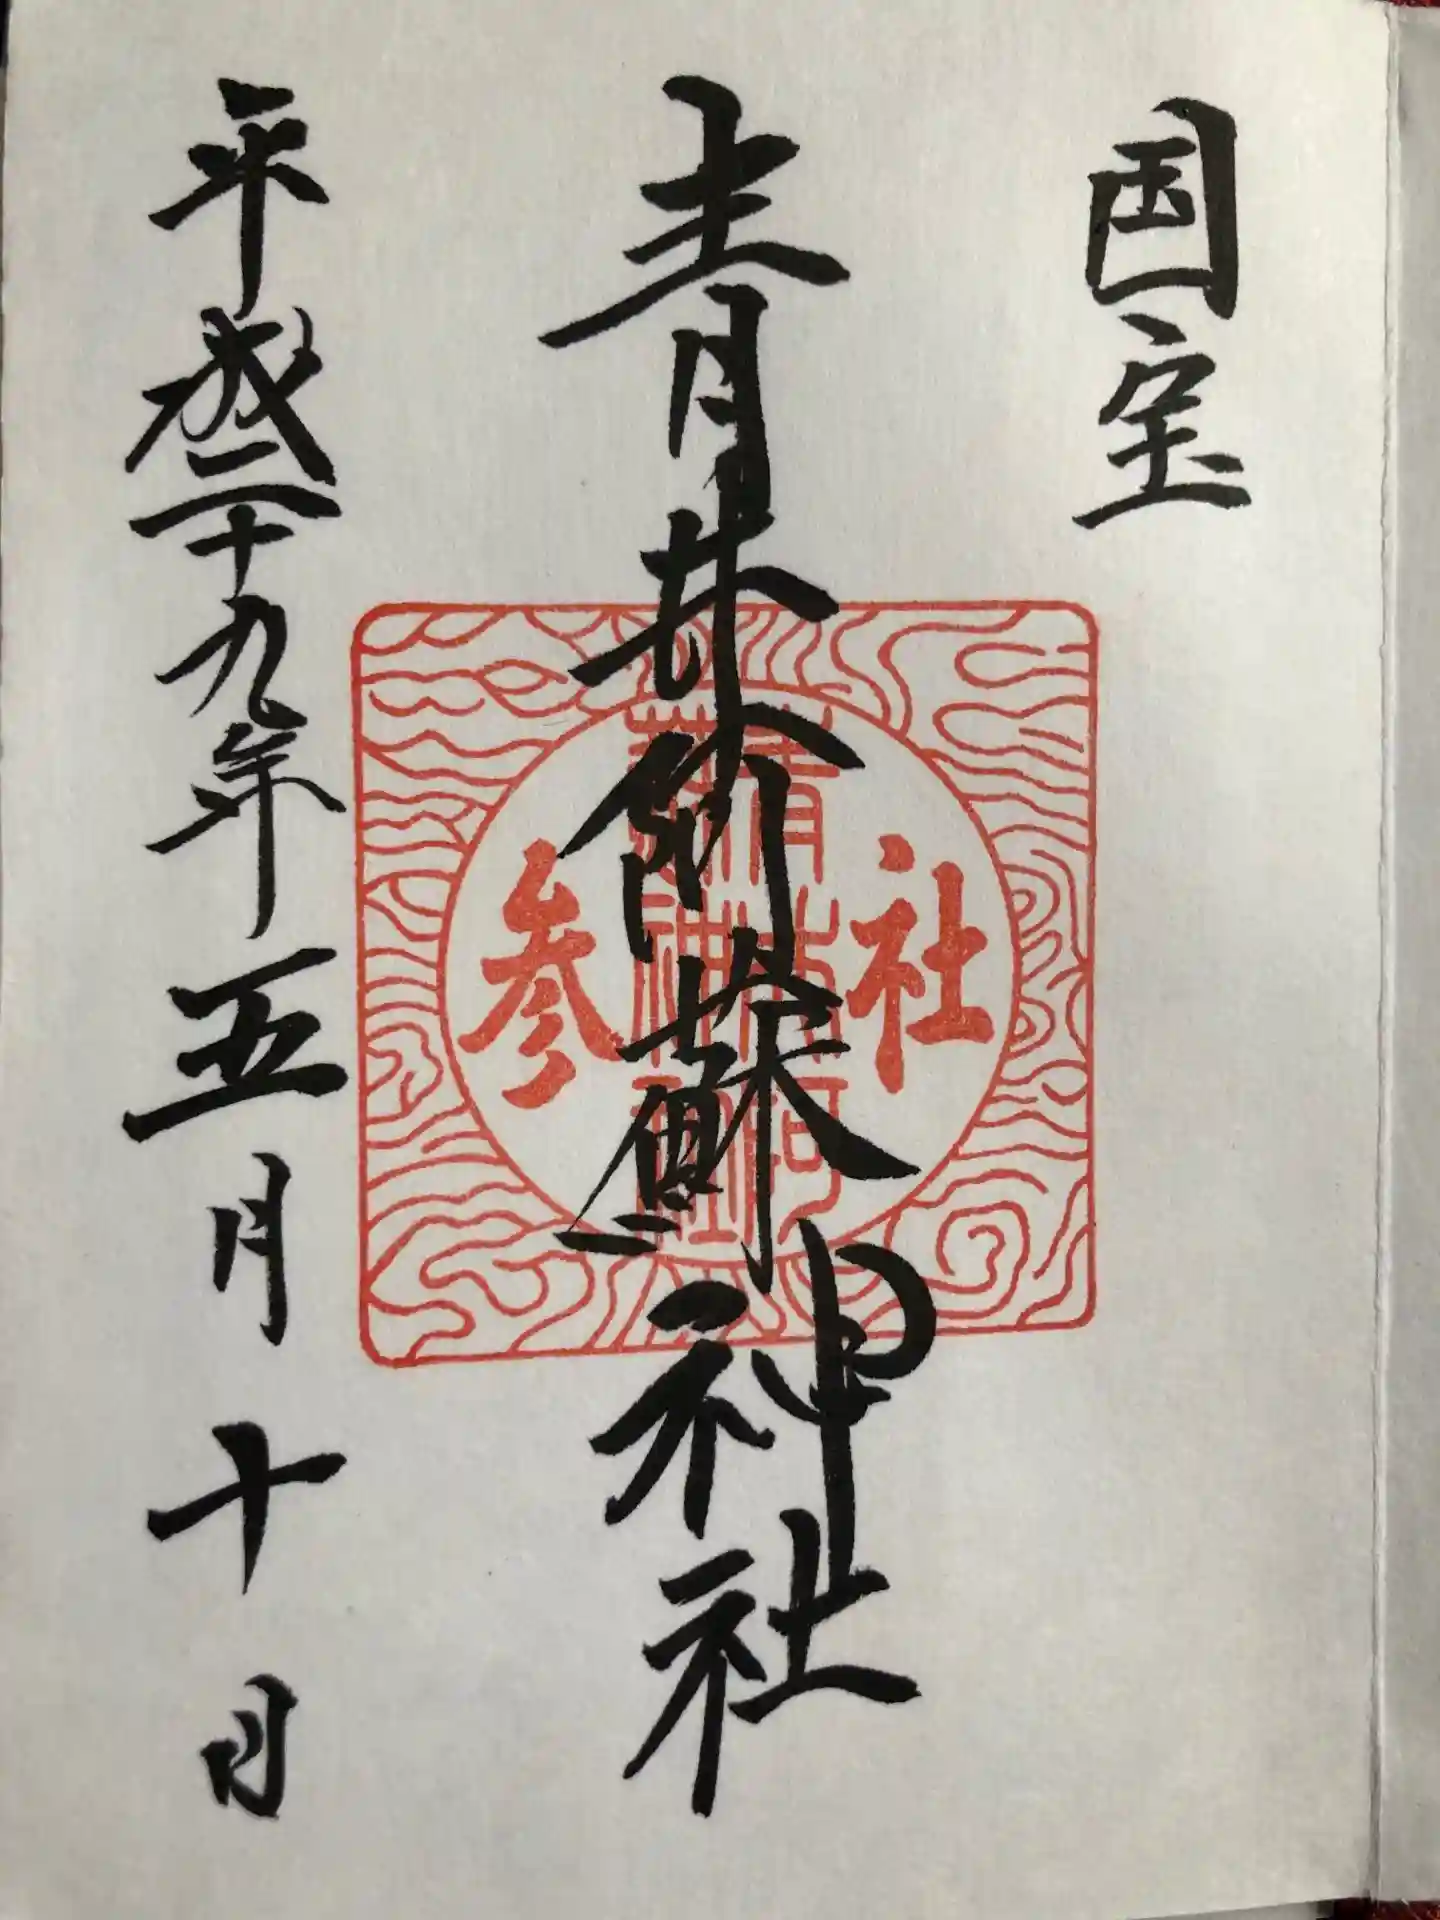 国宝
青井阿蘇神社
社参
青井阿
蘇神社
平成二十九年五月十日